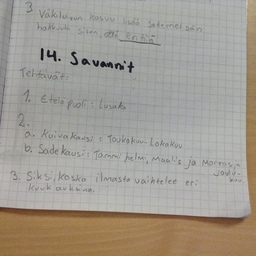 3. Väkiluvun kasvu lisää sademetsän
hakkuu siten, että
14. Savannit
Tehtävät:
1. Etelä puoli: Lusaka
2.
a. Kuivakausi: Toukokuu-Lokakuu
b. Sadekausi: Tammi, helmi, Maalis ja Marras ja
joulu-
kuu.
3. Siksi, koska ilmasto vaihtelee eri
kuukausina.